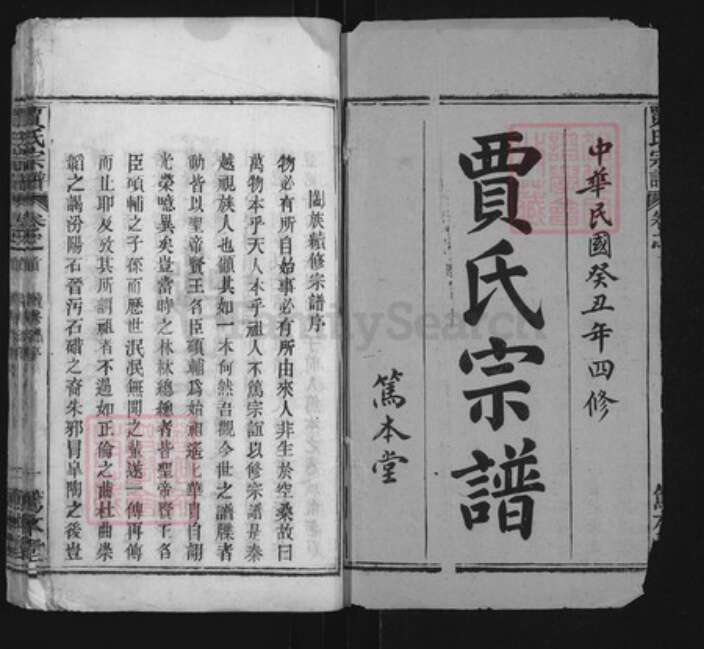 中華民國癸丑年四修
賈氏宗譜
篤本堂
闔族續修宗譜序
物必有所自始事必有所由來人非生於空桑故曰
萬物本乎天人本乎祖人不篤宗誼以修宗譜是秦
越視族人也顧其如一本何然吾觀今世之譜牒者
動皆以聖帝賢王名臣碩輔為始祖遙遙華胄自詡
光榮噫異矣豈當時之林林總總者皆聖帝賢王名
臣碩輔之子孫而歷世泯泯無聞之輩遂一傳再傳
而止耶及攷其所謂祖者不過如正倫之曲杜曲崇
韜之謁汾陽石晉沔石碏之裔朱邪冒皐陶之後豈
賈氏宗譜
卷首
FamilySearch